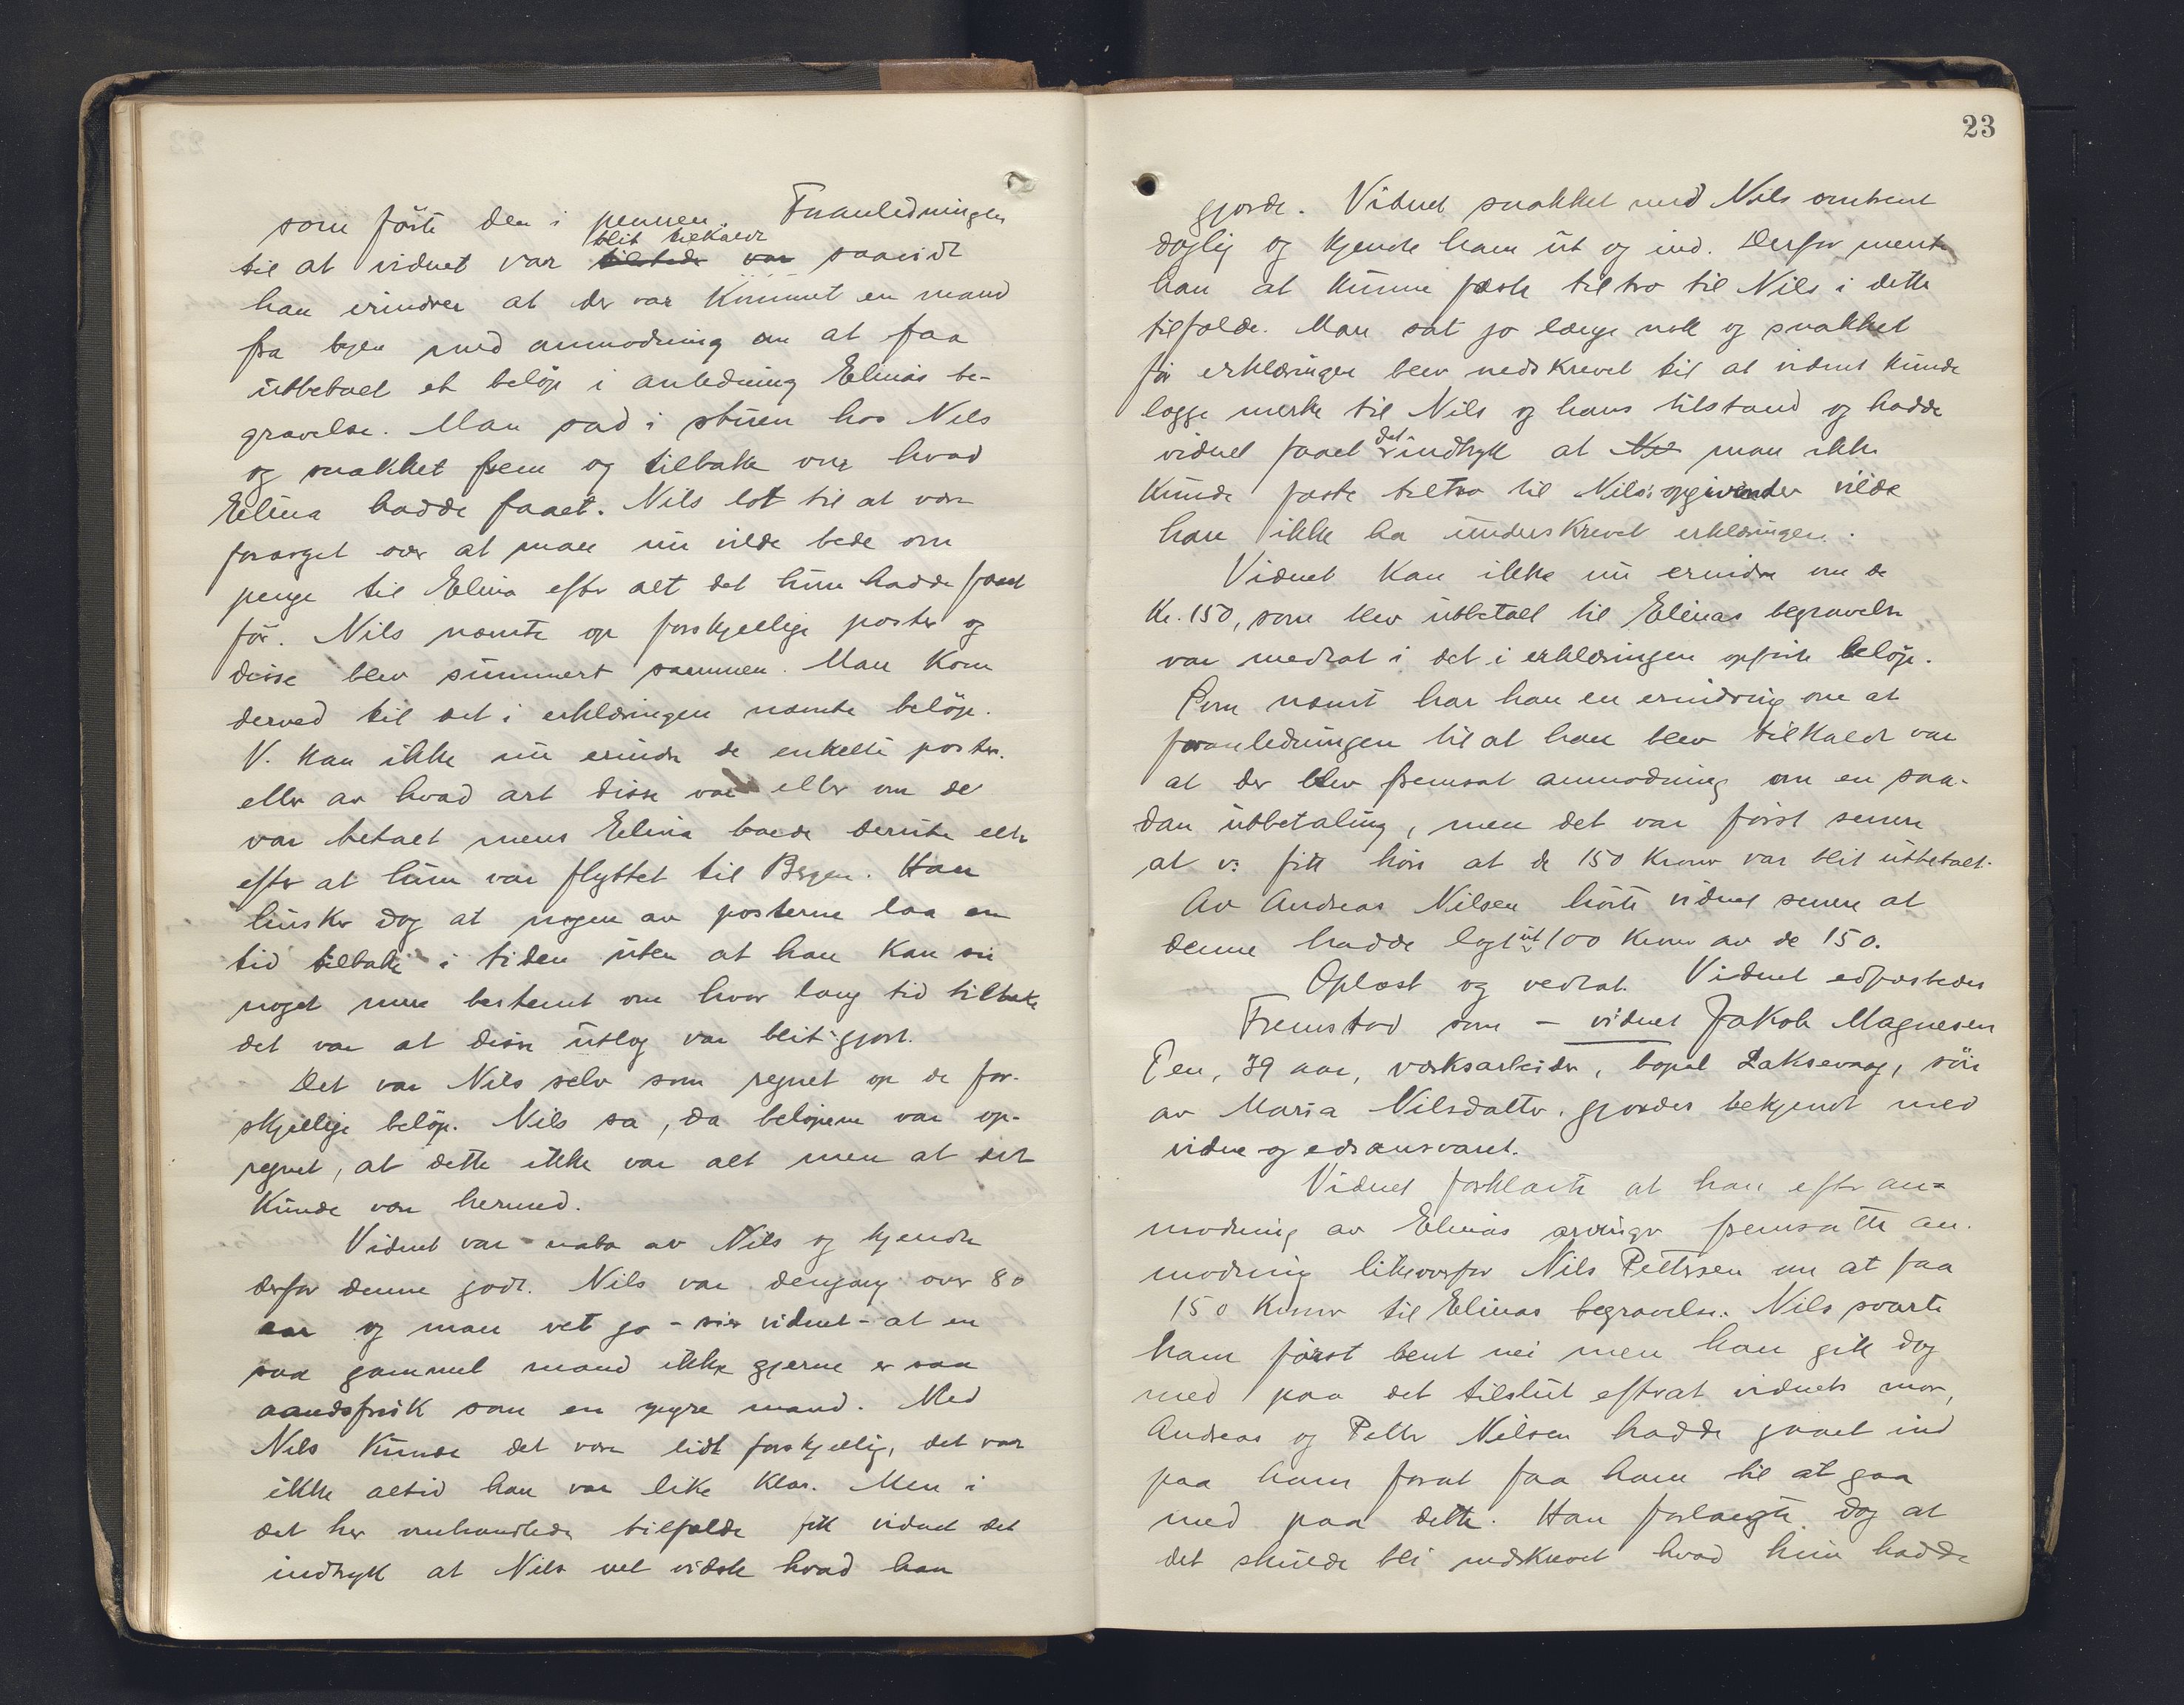 som förte den i pennen. Foranledningen
blit tilkaldt
til at vidnet var tilstede var saavidt
han erindrer at der var kommet en mand
fra byen med anmodning om at faa
utbetalt et belöp i anledning Elinas be-
gravelse. Man sad i stuen hos Nils
og snakket frem og tilbake om hvad
Elina hadde faaet. Nils lot til at være
forarget over at man nu vilde bede om
penge til Elina efter alt det hun hadde faaet
för. Nils nævnte op forskjellige poster og
disse blev summert sammen. Man kom
derved til det i erklæringen nævnte belöp.
V. kan ikke nu erindre de enkelte poster.
eller av hvad art disse var eller om de
var betalt mens Elina boede derute eller
efter at hun var flyttet til Bergen. Han
husker dog at nogen av posterne laa en
tid tilbake i tiden uten at han kan si
noget mere bestemt om hvor lang tid tilbake
det var at disse utlæg var blit gjort.
Det var Nils selv som regnet op de for-
skjellige belöp. Nils sa, da belöpene var op-
regnet, at dette ikke var alt men at det
kunde være hermed.
Vidnet var nabo av Nils og kjendte
derfor denne godt. Nils var dengang over 80
aar og man vet jo - sier vidnet - at en
saa gammel mand ikke gjerne er saa
aandsfrisk som en yngre mand. Med
Nils kunde det være lidt forskjellig, det var
ikke altid han var like klar. Men i
det her omhandlede tilfælde fik vidnet det
indtryk at Nils vel vidste hvad han
23
gjorde. Vidnet snakket med Nils omtrent
daglig og kjendte ham ut og ind. Derfor mente
han at kunne fæste tiltro til Nils i dette
tilfælde. Man sat jo længe nok og snakket
för erklæringen blev nedskrevet til at vidnet kunde
lægge merke til Nils og hans tilstand og hadde
vidnet faaet det indtryk at man ikke
kunde fæste tiltro til Nils's opgivender vilde
han ikke ha underskrevet erklæringen.
Vidnet kan ikke nu erindre om de
Kr. 150, som blev utbetalt til Elinas begravelse
var medtat i det i erklæringen opförte belöp.
Som nævnt har han en erindring om at
foranledningen til at han blev tilkaldt var
at der blev fremsat anmodning om en saa-
dan utbetaling, men det var först senere
at v. fik höre at de 150 kroner var blit utbetalt.
Av Andreas Nilsen hörte vidnet senere at
denne hadde lagt ut 100 kroner av de 150.
Oplæst og vedtat. Vidnet edfæstedes
Fremstod som - vidnet Jakob Magnesen
39 aar, verksarbeider, bopæl Laksevaag, sön
av Maria Nilsdatter. gjordes bekjendt med
vidne og edsansvaret.
Vidnet forklarte at han efter an=
modning av Elinas arvinger fremsatte an-
modning likeoverfor Nils Pettersen om at faa
150 kroner til Elinas begravelse. Nils svarte
ham först bent nei men han gik dog
med paa det tilslut efterat vidnets mor,
Andreas og Petter Nilsen hadde gaaet ind
paa ham forat faa ham til at gaa
med paa dette. Han forlangte dog at
det skulde bli nedskrevet hvad hun hadde